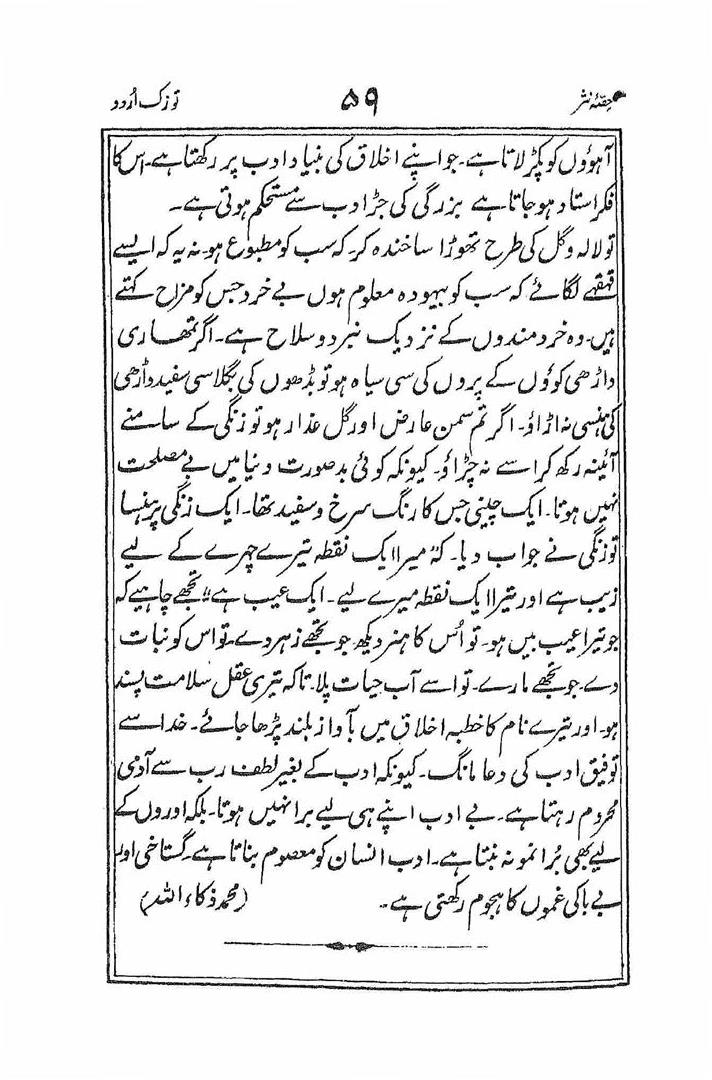 حصّۂ نثر ۵۹ توزک اُردو
آہوؤں کو پکڑ لاتا ہے۔ جو اپنے اخلاق کی بنیاد ادب پر رکھتا ہے۔ اس کا
فکر استاد ہو جاتا ہے بزرگی کی جڑ ادب سے مستحکم ہوتی ہے۔
تو لالہ و گل کی طرح تھوڑا سا خندہ کر کہ سب کو مطبوع ہو۔ نہ یہ کہ ایسے
قہقہے لگائے کہ سب کو بیہودہ معلوم ہوں بے خرد جس کو مزاح کہتے
ہیں۔ وہ خردمندوں کے نزدیک نبرد و سلاح ہے۔ اگر تمھاری
داڑھی کوّوں کے پروں کی سی سیاہ ہو تو بڈھوں کی بگلا سی سفید داڑھی
کی ہنسی نہ اڑاؤ۔ اگر تم سمن عارض اور گل عذار ہو تو زنگی کے سامنے
آئینہ رکھ کر اسے نہ چڑاؤ۔ کیونکہ کوئی بدصورت دنیا میں بے مصلحت
نہیں ہوتا۔ ایک چینی جس کا رنگ سرخ و سفید تھا۔ ایک زنگی پر ہنسا
تو زنگی نے جواب دیا۔ کہ "میرا ایک نقطہ تیرے چہرے کے لیے
زیب ہے اور تیرا ایک نقطہ میرے لیے۔ ایک عیب ہے" تجھے چاہیے کہ
جو تیرا عیب بیں ہو۔ تو اُس کا ہنر دیکھ جو تجھے زہر دے۔ تو اس کو نبات
دے۔ جو تجھے مارے۔ تو اسے آب حیات پلا۔ تاکہ تیری عقل سلامت پسند
ہو۔ اور تیرے نام کا خطبہ اخلاق میں بآواز بلند پڑھا جائے۔ خدا سے
توفیق ادب کی دعا مانگ۔ کیونکہ ادب کے بغیر لطف رب سے آدمی
محروم رہتا ہے۔ بے ادب اپنے ہی لیے برا نہیں ہوتا۔ بلکہ اوروں کے
لیے بھی بُرا نمونہ بنتا ہے۔ ادب انسان کو معصوم بناتا ہے۔ گستاخی اور
بے باکی غموں کا ہجوم رکھتی ہے۔ (محمد ذکاء اللہ)